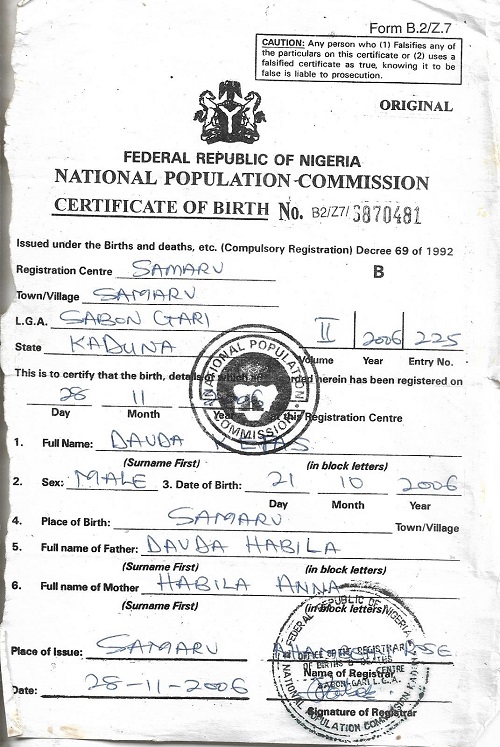 Form B.2/Z.7
CAUTION: Any person who (1) Falsifies any of
the particulars on this certificate or (2) uses a
falsified certificate as true, knowing it to be
false is liable to prosecution.
ORIGINAL
FEDERAL REPUBLIC OF NIGERIA
NATIONAL POPULATION COMMISSION
CERTIFICATE OF BIRTH No. B2/Z7/ 3870481
Issued under the Births and deaths, etc. (Compulsory Registration) Decree 69 of 1992
Registration Centre SAMARU B
Town/Village SAMARU
L.G.A. SABON GARI II 2006 225
State KADUNA Volume Year Entry No.
NATIONAL POPULATION COMMISSION
This is to certify that the birth, details of which are recorded herein has been registered on
28 11 at this Registration Centre
Day Month
1. Full Name: DAUDA
(Surname First) (in block letters)
2. Sex: MALE 3. Date of Birth: 21 10 2006
Day Month Year
4. Place of Birth: SAMARU Town/Village
5. Full name of Father: DAUDA HABILA
(Surname First) (in block letters)
6. Full name of Mother HABILA ANNA
(Surname First) (in block letters)
Place of Issue: SAMARU ROSE
Name of Registrar
Date: 28-11-2006
Signature of Registrar
FEDERAL REPUBLIC OF NIGERIA
OFFICE OF THE REGISTRAR
OF BIRTHS & DEATHS
CENTRE
SABON GARI L.G.A.
NATIONAL POPULATION COMMISSION